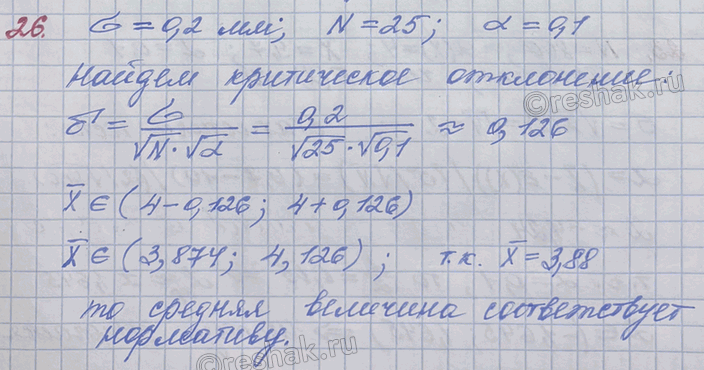 26. σ = 0,2 мм; N = 25; α = 0,1
Найдем критическое отклонение:
δ = σ / (√N · √α) = 0,2 / (√25 · √0,1) ≈ 0,126
X̄ ∈ (4 - 0,126; 4 + 0,126)
X̄ ∈ (3,874; 4,126); т.к. X̄ = 3,88
то средняя величина соответствует
нормативу.
©reshak.ru
reshak.ru